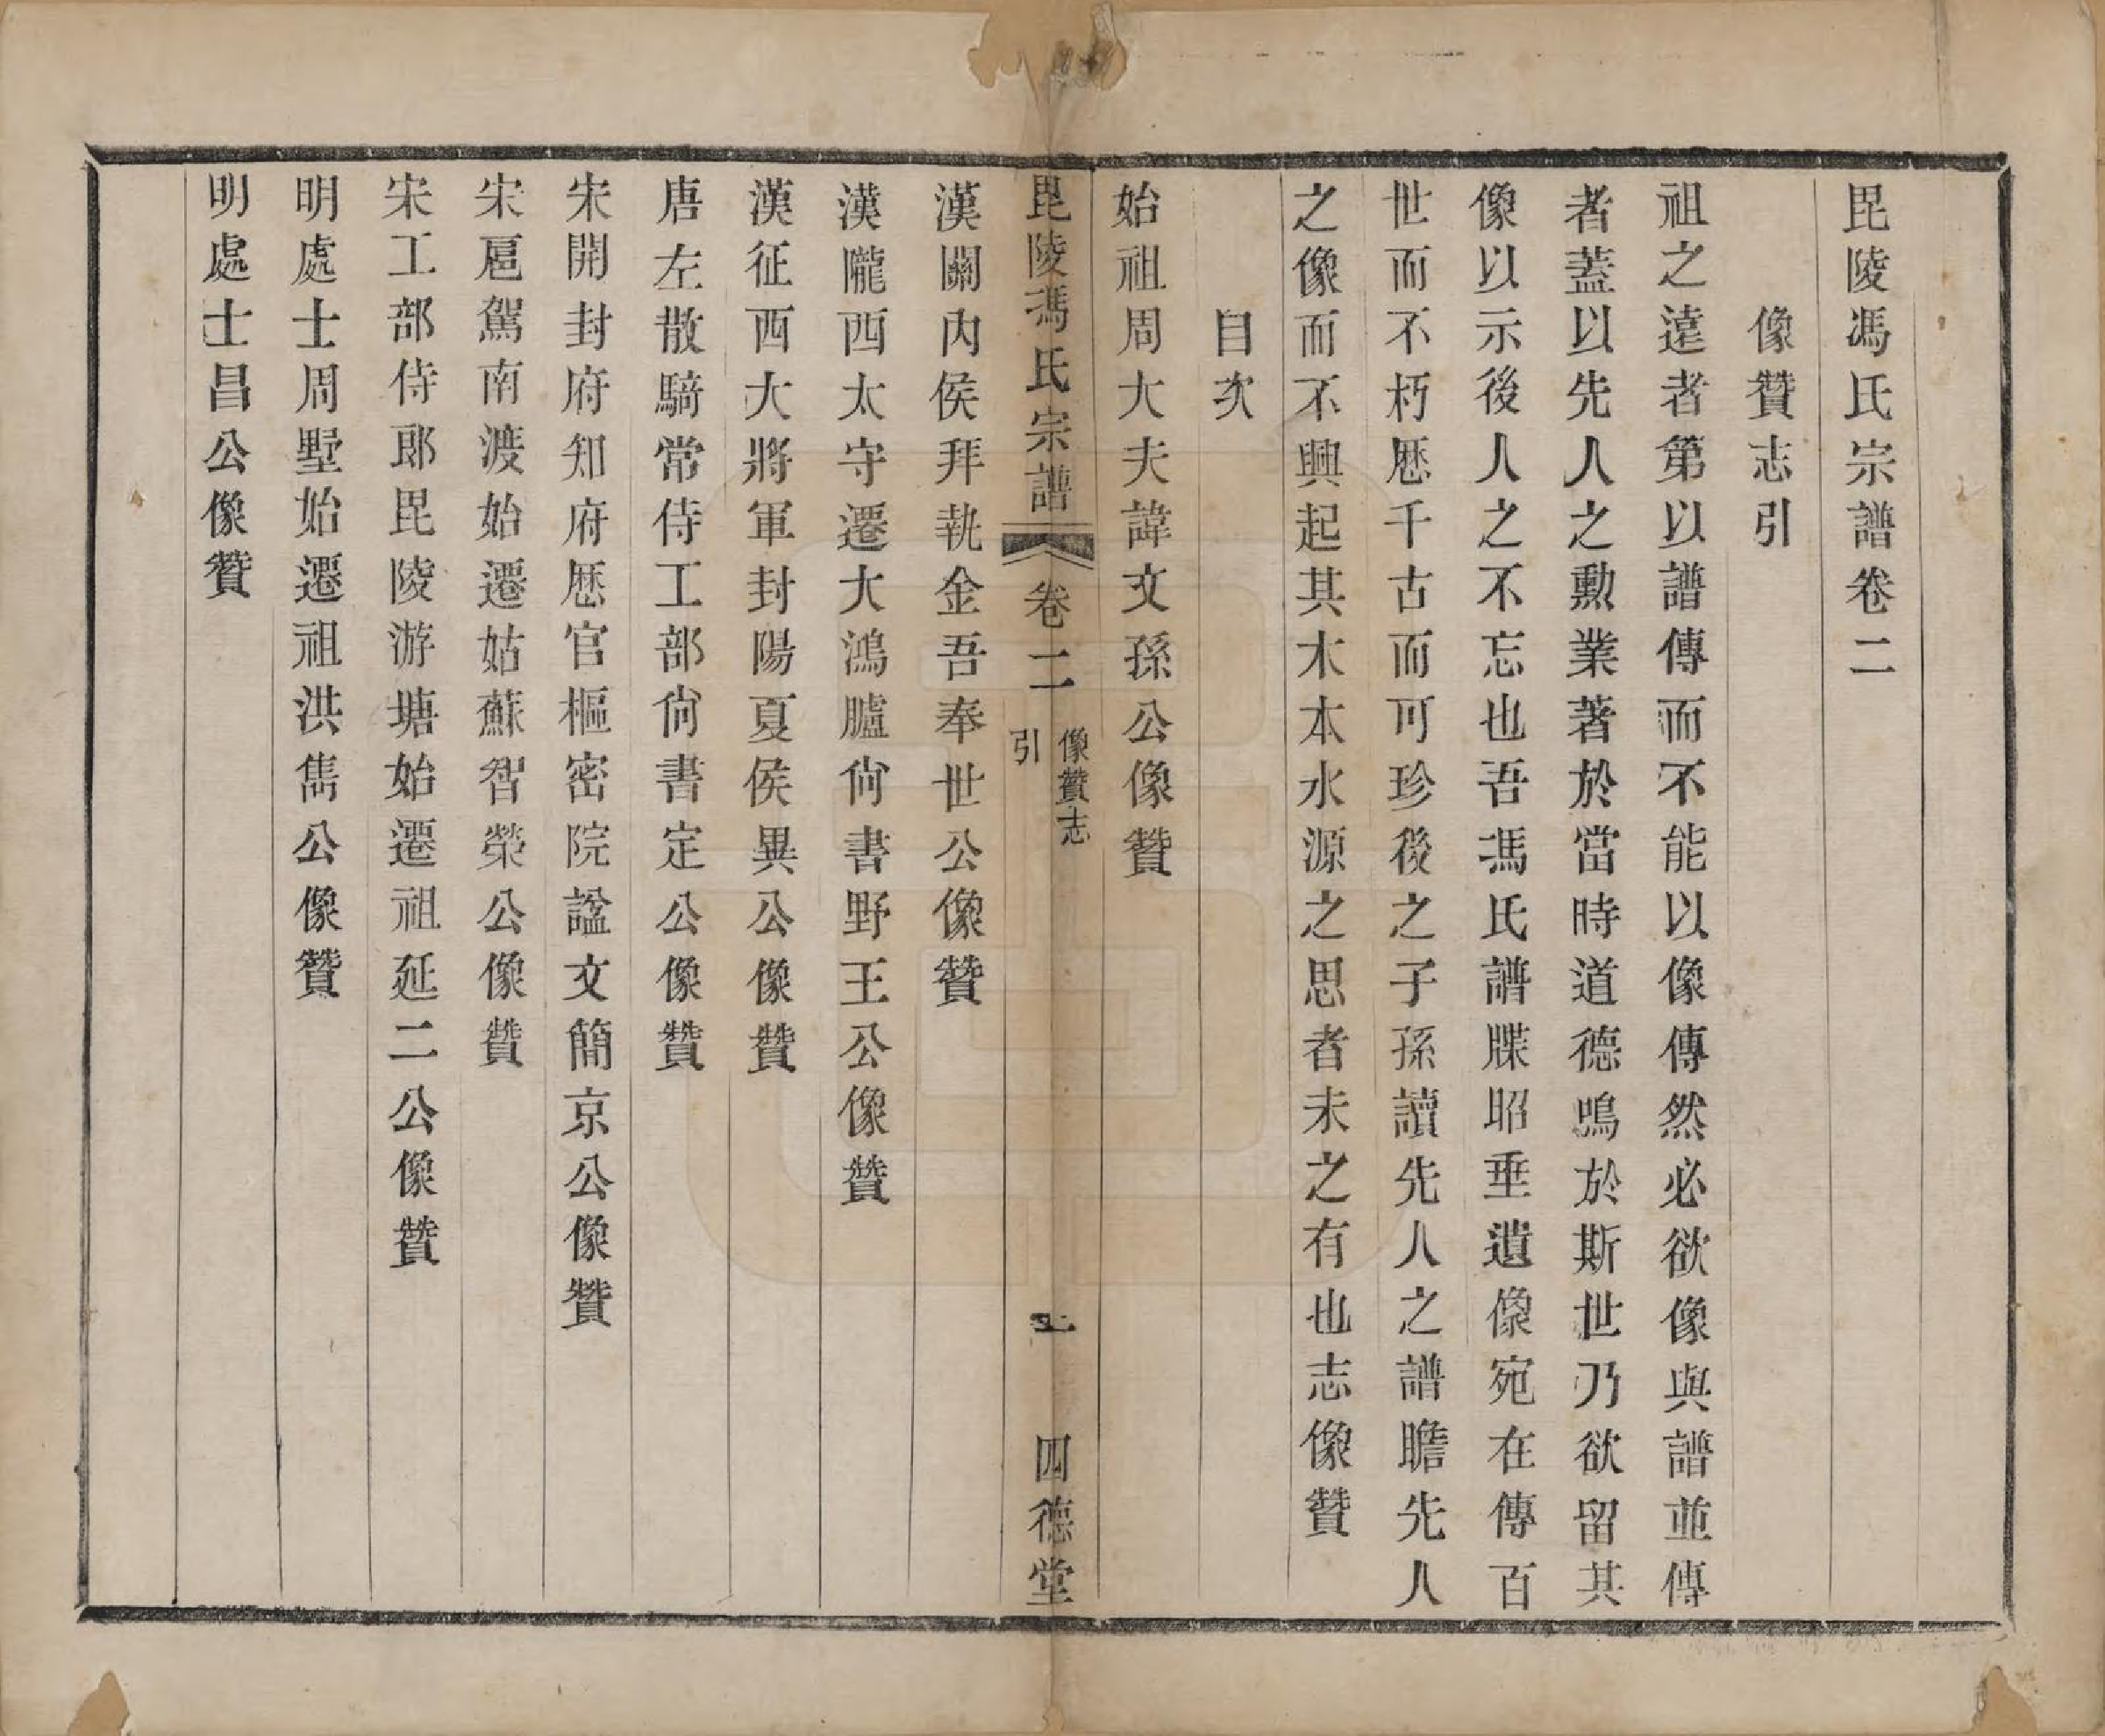 毘陵馮氏宗譜卷二
像贊志引
祖之遠者第以譜傳而不能以像傳然必欲像與譜並傳
者蓋以先人之勳業著於當時道德鳴於斯世乃欲留其
像以示後人之不忘也吾馮氏譜牒昭垂遺像宛在傳百
世而不朽歷千古而可珍後之子孫讀先人之譜瞻先人
之像而不興起其木本水源之思者未之有也志像贊
目次
始祖周大夫諱文孫公像贊
毘陵馮氏宗譜
卷二
像贊志
引
一
四德堂
漢關內侯拜執金吾奉世公像贊
漢隴西太守遷大鴻臚尙書野王公像贊
漢征西大將軍封陽夏侯異公像贊
唐左散騎常侍工部尙書定公像贊
宋開封府知府歷官樞密院諡文簡京公像贊
宋扈駕南渡始遷姑蘇智榮公像贊
宋工部侍郎毘陵游塘始遷祖延二公像贊
明處士周墅始遷祖洪雋公像贊
明處士昌公像贊